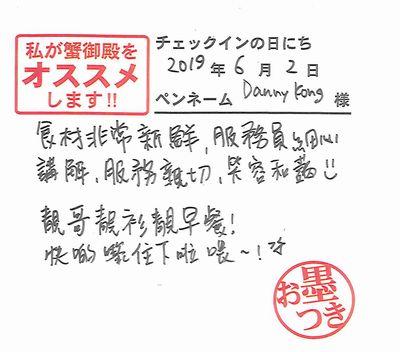 私が蟹御殿を
オススメ
します!!
チェックインの日にち
2019 年 6 月 2 日
ペンネーム Danny Kong 様
食材非常新鮮, 服務員細心
講解, 服務親切, 笑容和藹
靚哥靚衫靚早餐!
快啲嚟住下啦喂~!
お墨
つき